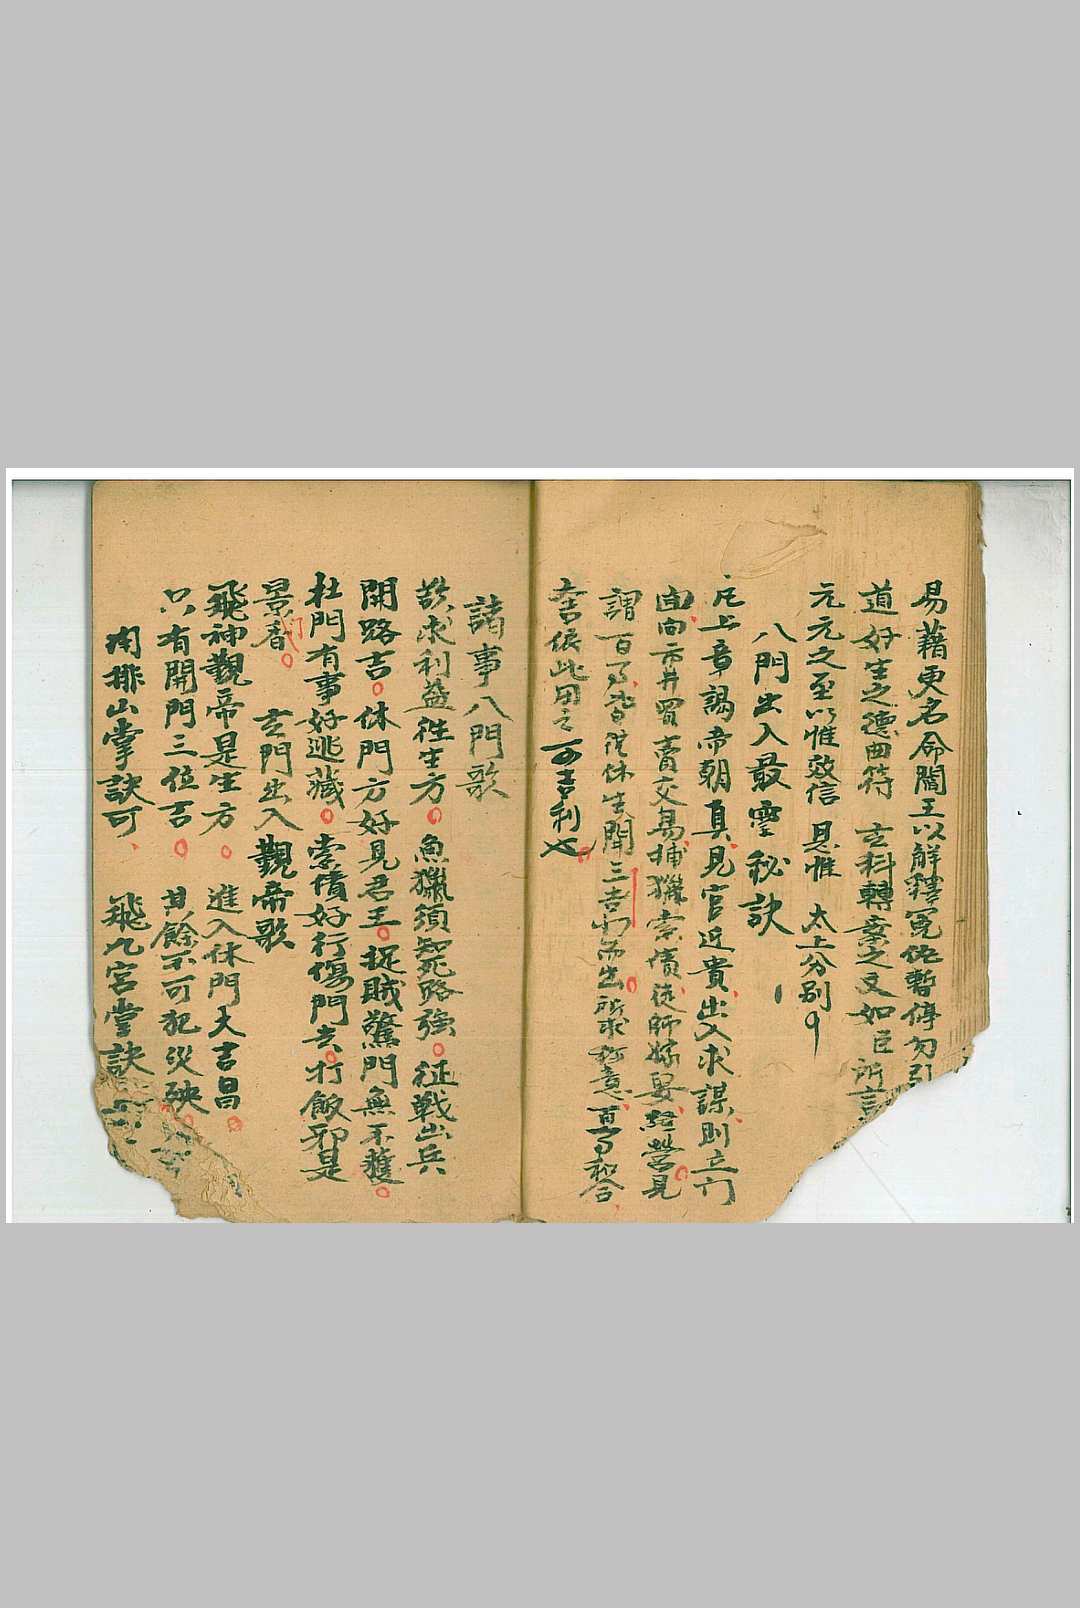 易藉更名命閻王以解釋冤仇暫停勿引
道好生之德曲符 玄科轉奏之文如臣所言
元元之至以惟效信 恩惟 太上分別
八門出入最靈秘訣
凡上章謁帝朝真見官近貴出入求謀則立門
向市井買賣交易捕獵索債徒師嫁娶經營見
謂百事皆從休生開三吉門而出所求称意百事和合
大吉依此用之可吉利也
諸事八門歌
欲求利益往生方 魚獵須知死路強 征戰出兵
開路吉 休門方好見君王 捉賊驚門無不獲
杜門有事好逃藏 索債好行傷門去 打飯邪是
景香 玄門出入觀帝歌
飛神觀帝是生方 進入休門大吉昌
只有開門三位吉 其餘不可犯災殃
用排山掌訣可 飛九宮掌訣